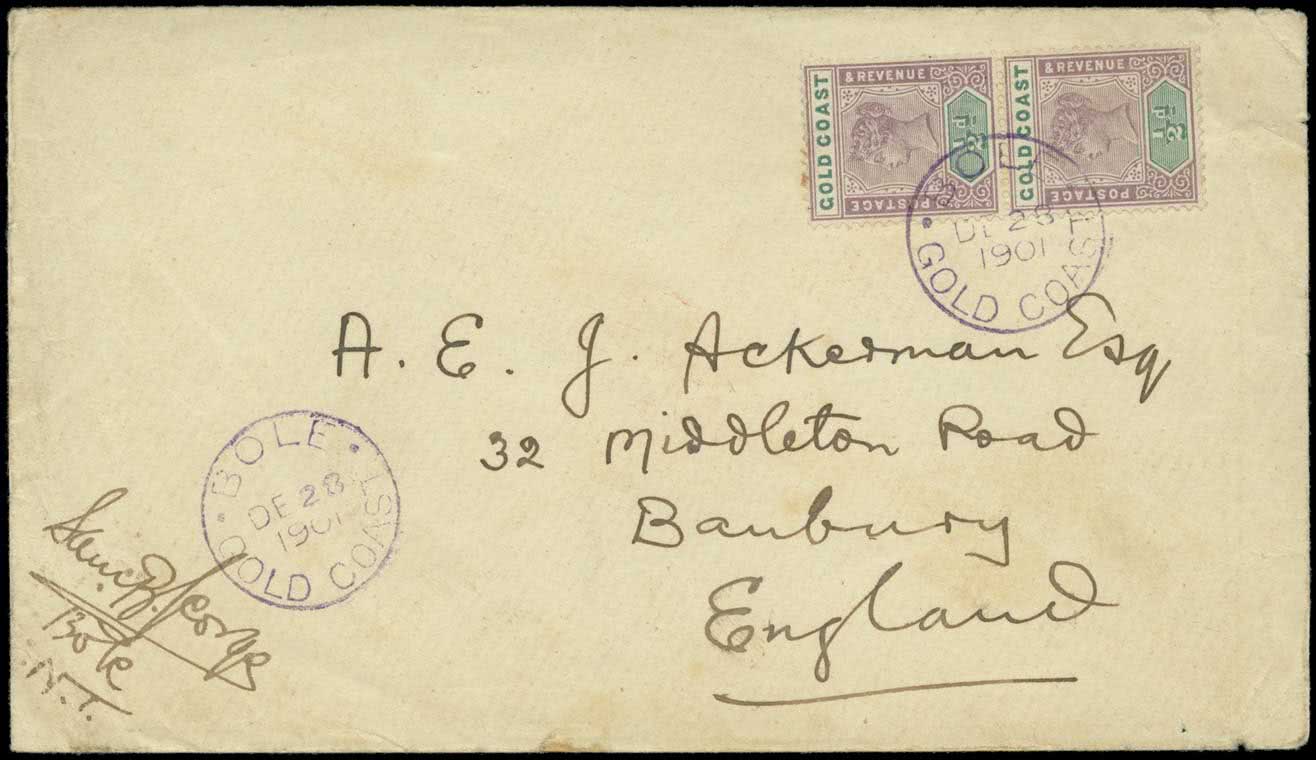 GOLD COAST
& REVENUE
POSTAGE
½d
GOLD COAST
& REVENUE
POSTAGE
½d
BOLE
DE 28
1901
GOLD COAST
A. E. J. Ackerman Esq
32 Middleton Road
Banbury
England
BOLE
DE 28
1901
GOLD COAST
B. George
Bole
N.T.